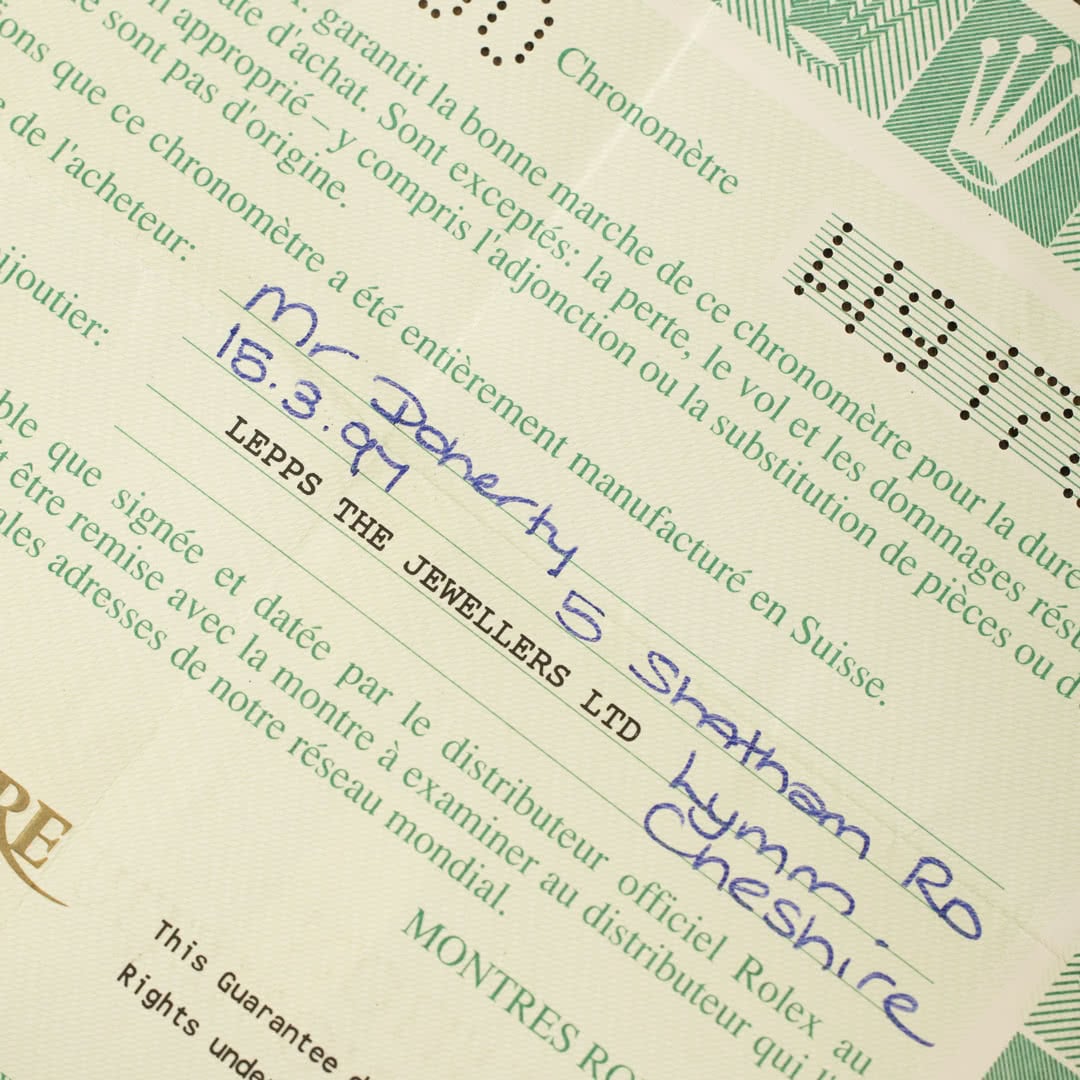 Chronomètre
garantit la bonne marche de ce chronomètre pour la
d'achat. Sont exceptés: la perte, le vol et les dommages
approprié – y compris l'adjonction ou la substitution de pièces ou
sont pas d'origine.
que ce chronomètre a été entièrement manufacturé en Suisse.
de l'acheteur:
Mr Doherty 5 Shatham Rd
15.3.97 Lymm
Cheshire
LEPPS THE JEWELLERS LTD
que signée et datée par le distributeur officiel Rolex au
être remise avec la montre à examiner au distributeur qui
adresses de notre réseau mondial.
MONTRES
This Guarantee
Rights